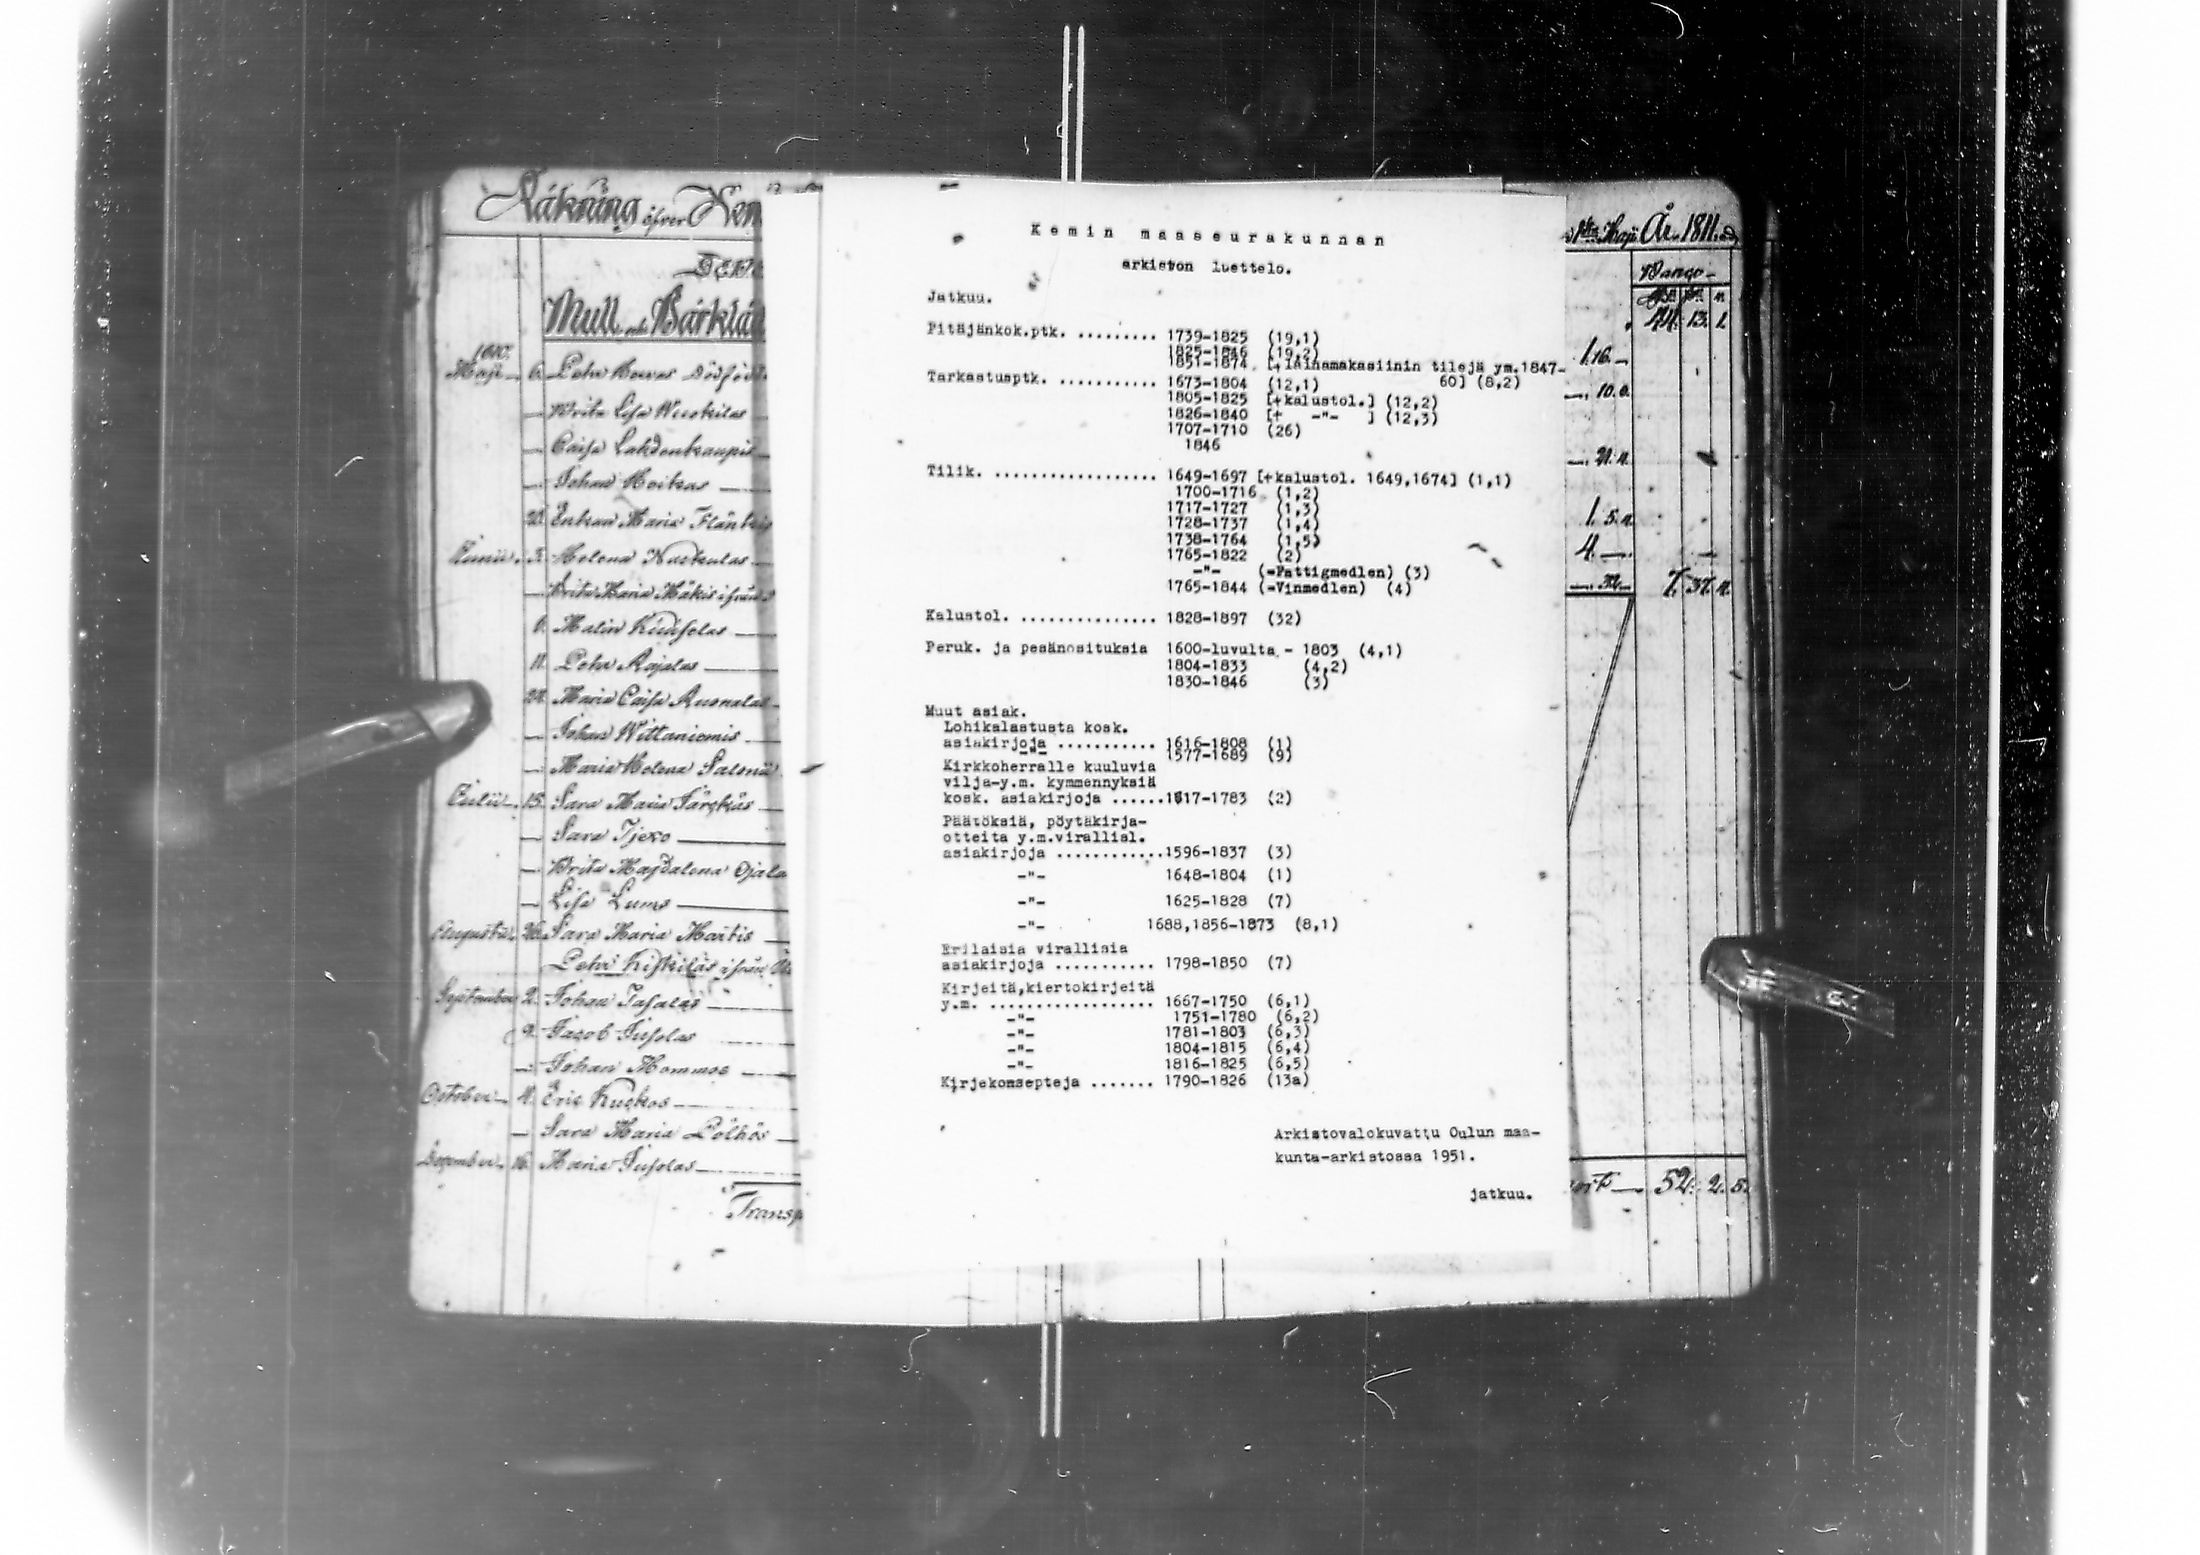 Räkning öfver Kem
Mull och Bårklä
1810.
Maji 6. Pehr
Brita Lisa Wuokilas
Caisa Lahdenkaupis
Johan Hoikas
Enkan Maria
Junii 3. Helena
Brita Maria Mäkis ifrån
Malin
11. Pehr Rajalas
Maria Caisa Ruonalas
Johan Wittaniemis
Maria Helena
Julii 15. Sara Maria
Sara Tjexo
Brita Magdalena Ojala
Lisa Lums
Augusti 26. Sara Maria Martis
Pehr Kiskiläs ifrån
September 2. Johan
9. Jacob Jusolas
Johan Mommos
October 4. Eric Kuckos
Sara Maria Pölhös
December 16. Maria Jusolas
Transp
Kemin maaseurakunnan
arkiston luettelo.
Jatkuu.
Pitäjänkok.ptk. ......... 1739-1825 (19,1)
1825-1846 (19,2)
1851-1874 [+ lainamakasiinin tilejä ym.1847-
60] (8,2)
Tarkastusptk. ........... 1673-1804 (12,1)
1805-1825 [+kalustol.] (12,2)
1826-1840 [+ -"- ] (12,3)
1707-1710 (26)
1846
Tilik. .................. 1649-1697 [+kalustol. 1649,1674] (1,1)
1700-1716 (1,2)
1717-1727 (1,3)
1728-1737 (1,4)
1738-1764 (1,5)
1765-1822 (2)
-"- (=Fattigmedlen) (3)
1765-1844 (=Vinmedlen) (4)
Kalustol. ............... 1828-1897 (32)
Peruk. ja pesänosituksia 1600-luvulta - 1803 (4,1)
1804-1833 (4,2)
1830-1846 (3)
Muut asiak.
Lohikalastusta kosk.
asiakirjoja ........... 1616-1808 (1)
-"- 1577-1689 (9)
Kirkkoherralle kuuluvia
vilja-y.m. kymmennyksiä
kosk. asiakirjoja ......1617-1783 (2)
Päätöksiä, pöytäkirja-
otteita y.m.virallisl.
asiakirjoja ............1596-1837 (3)
-"- 1648-1804 (1)
-"- 1625-1828 (7)
-"- 1688,1856-1873 (8,1)
Erilaisia virallisia
asiakirjoja ........... 1798-1850 (7)
Kirjeitä,kiertokirjeitä
y.m. .................. 1667-1750 (6,1)
-"- 1751-1780 (6,2)
-"- 1781-1803 (6,3)
-"- 1804-1815 (6,4)
-"- 1816-1825 (6,5)
Kirjekonsepteja ....... 1790-1826 (13a)
Arkistovalokuvattu Oulun maa-
kunta-arkistossa 1951.
jatkuu.
Maji År 1811.
Banco
44. 13. 1.
1. 16.
10. 0.
1. 5. 11.
4.
7. 37. 11.
52. 2. 5.